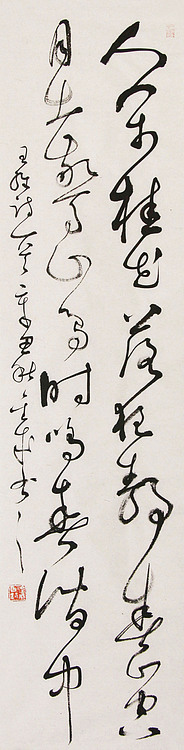 人闲桂花落夜静春山空
月出惊山鸟时鸣春涧中
王维诗一首辛丑秋书